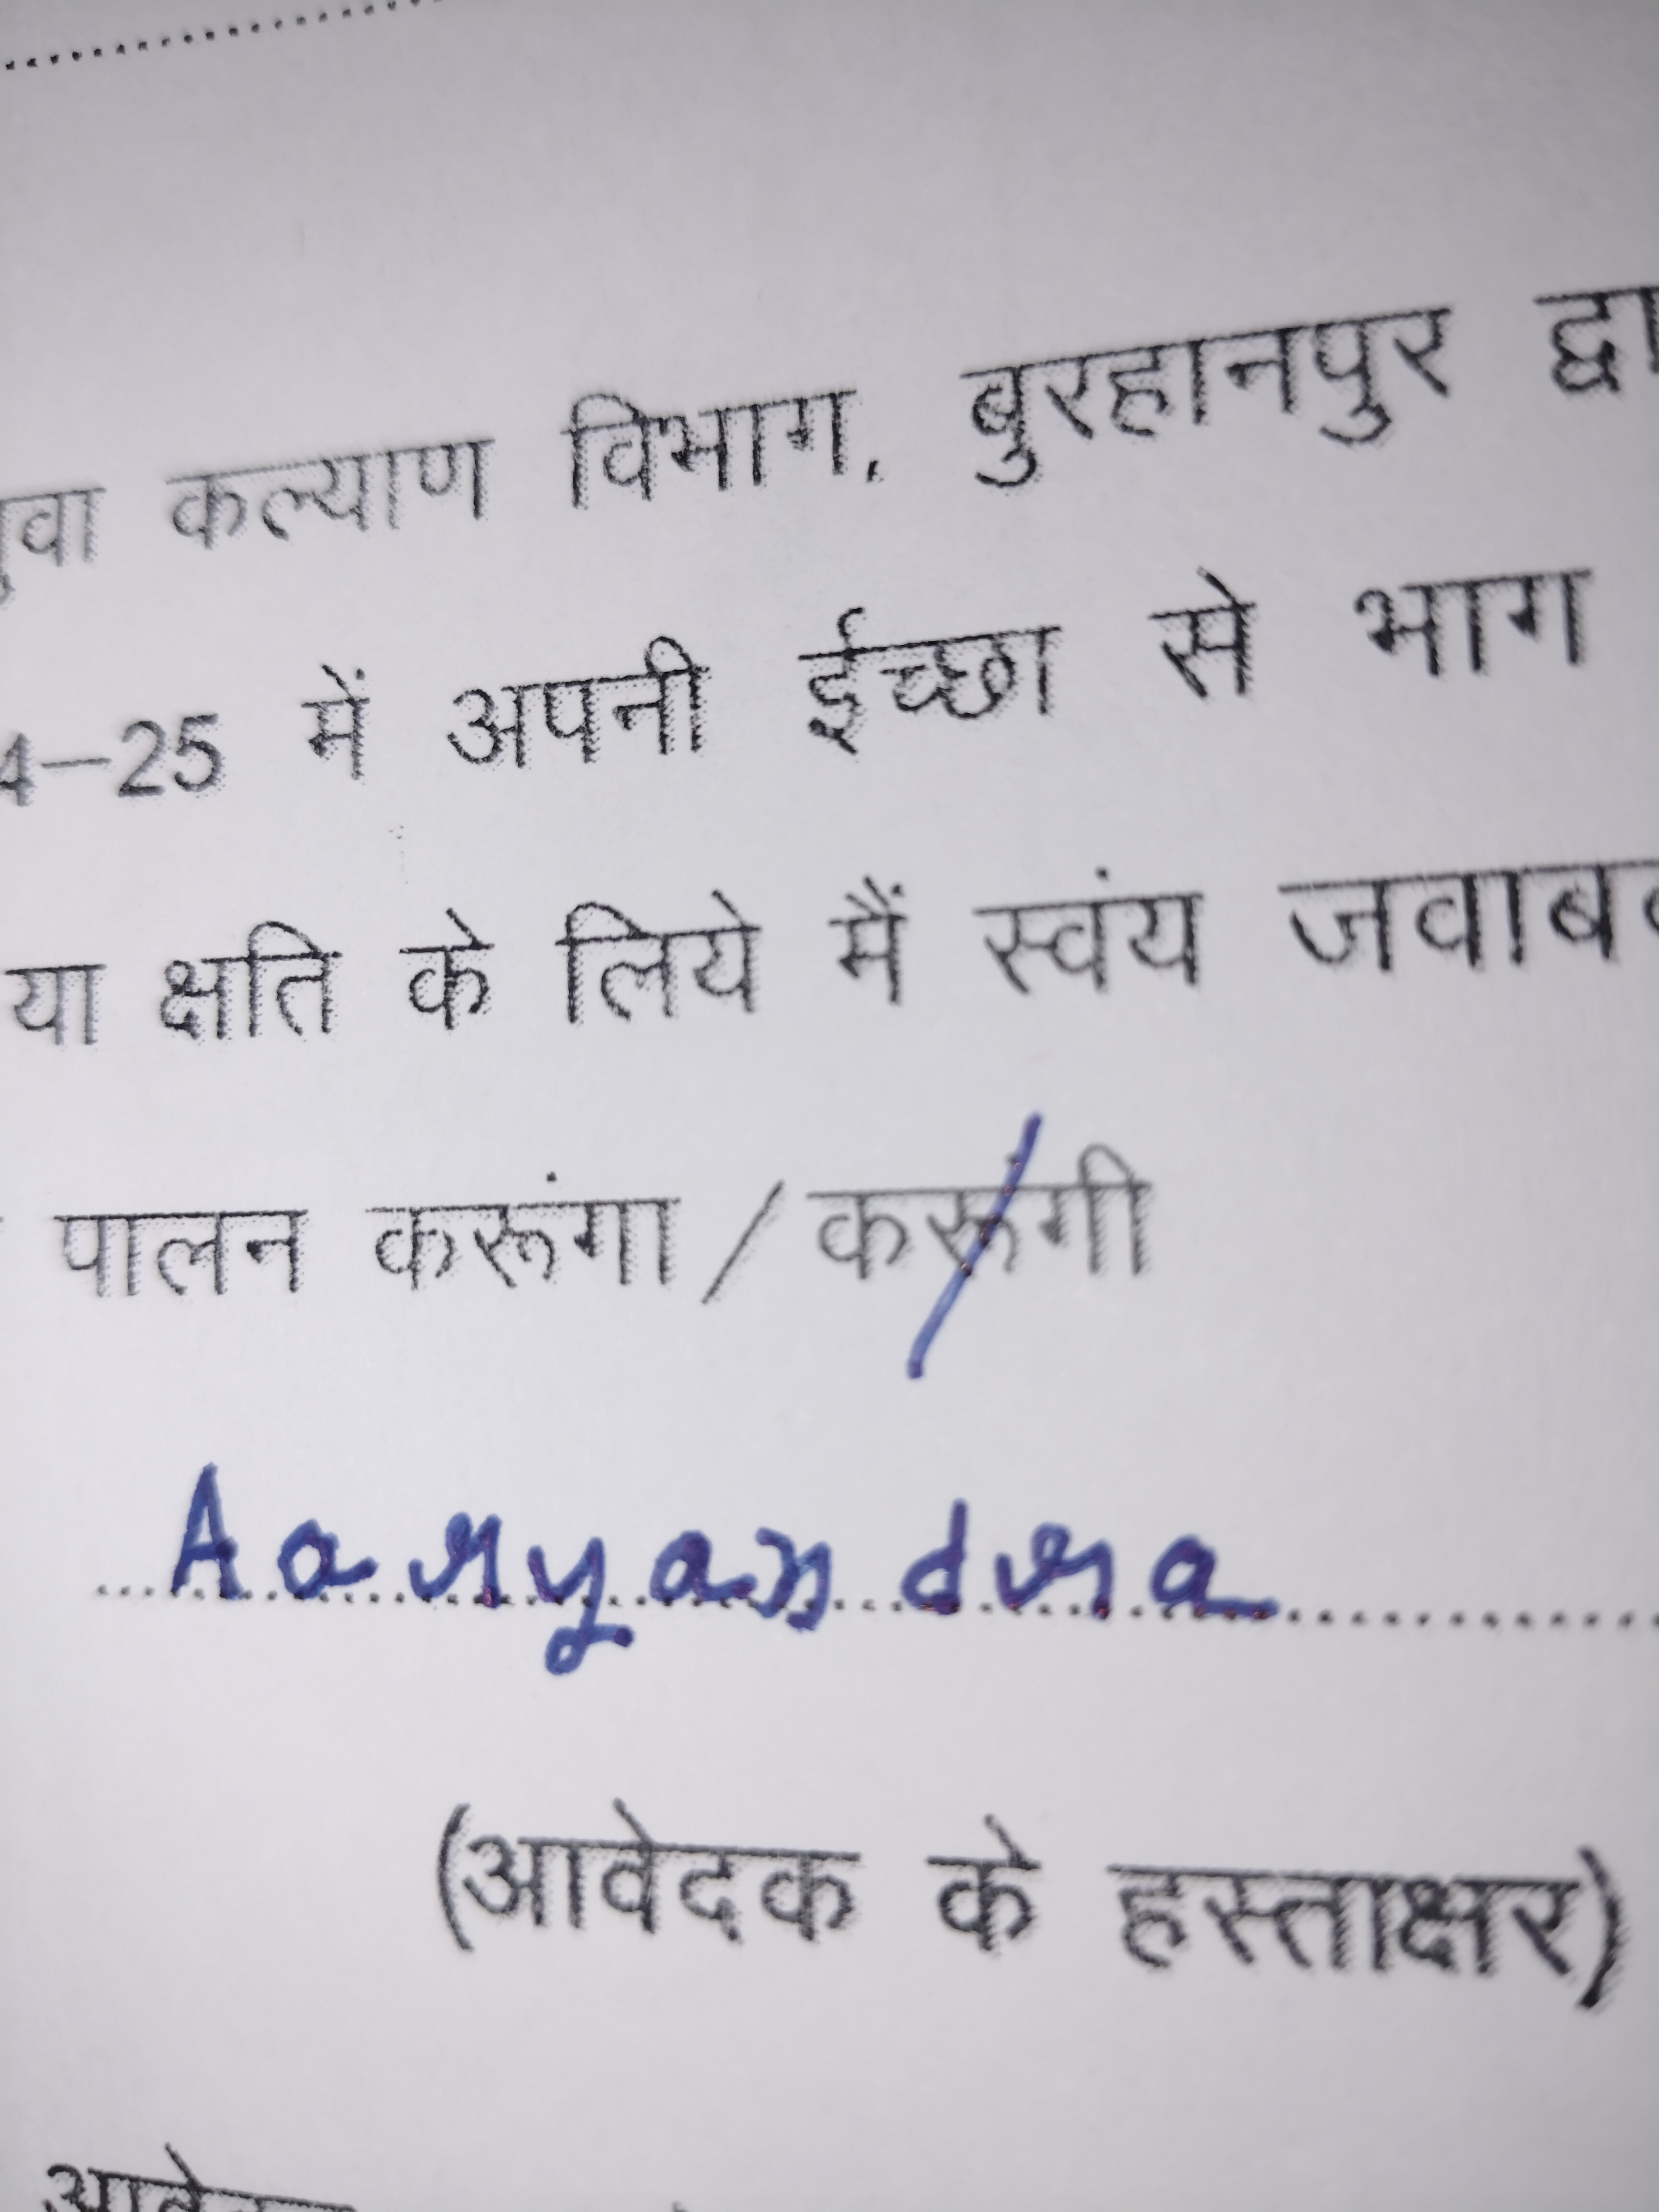 युवा कल्याण विभाग, बुरहानपुर
4–25 में अपनी ईच्छा से भाग
या क्षति के लिये मैं स्वंय
पालन करूंगा / करूंगी
Aaryandra
(आवेदक के हस्ताक्षर)